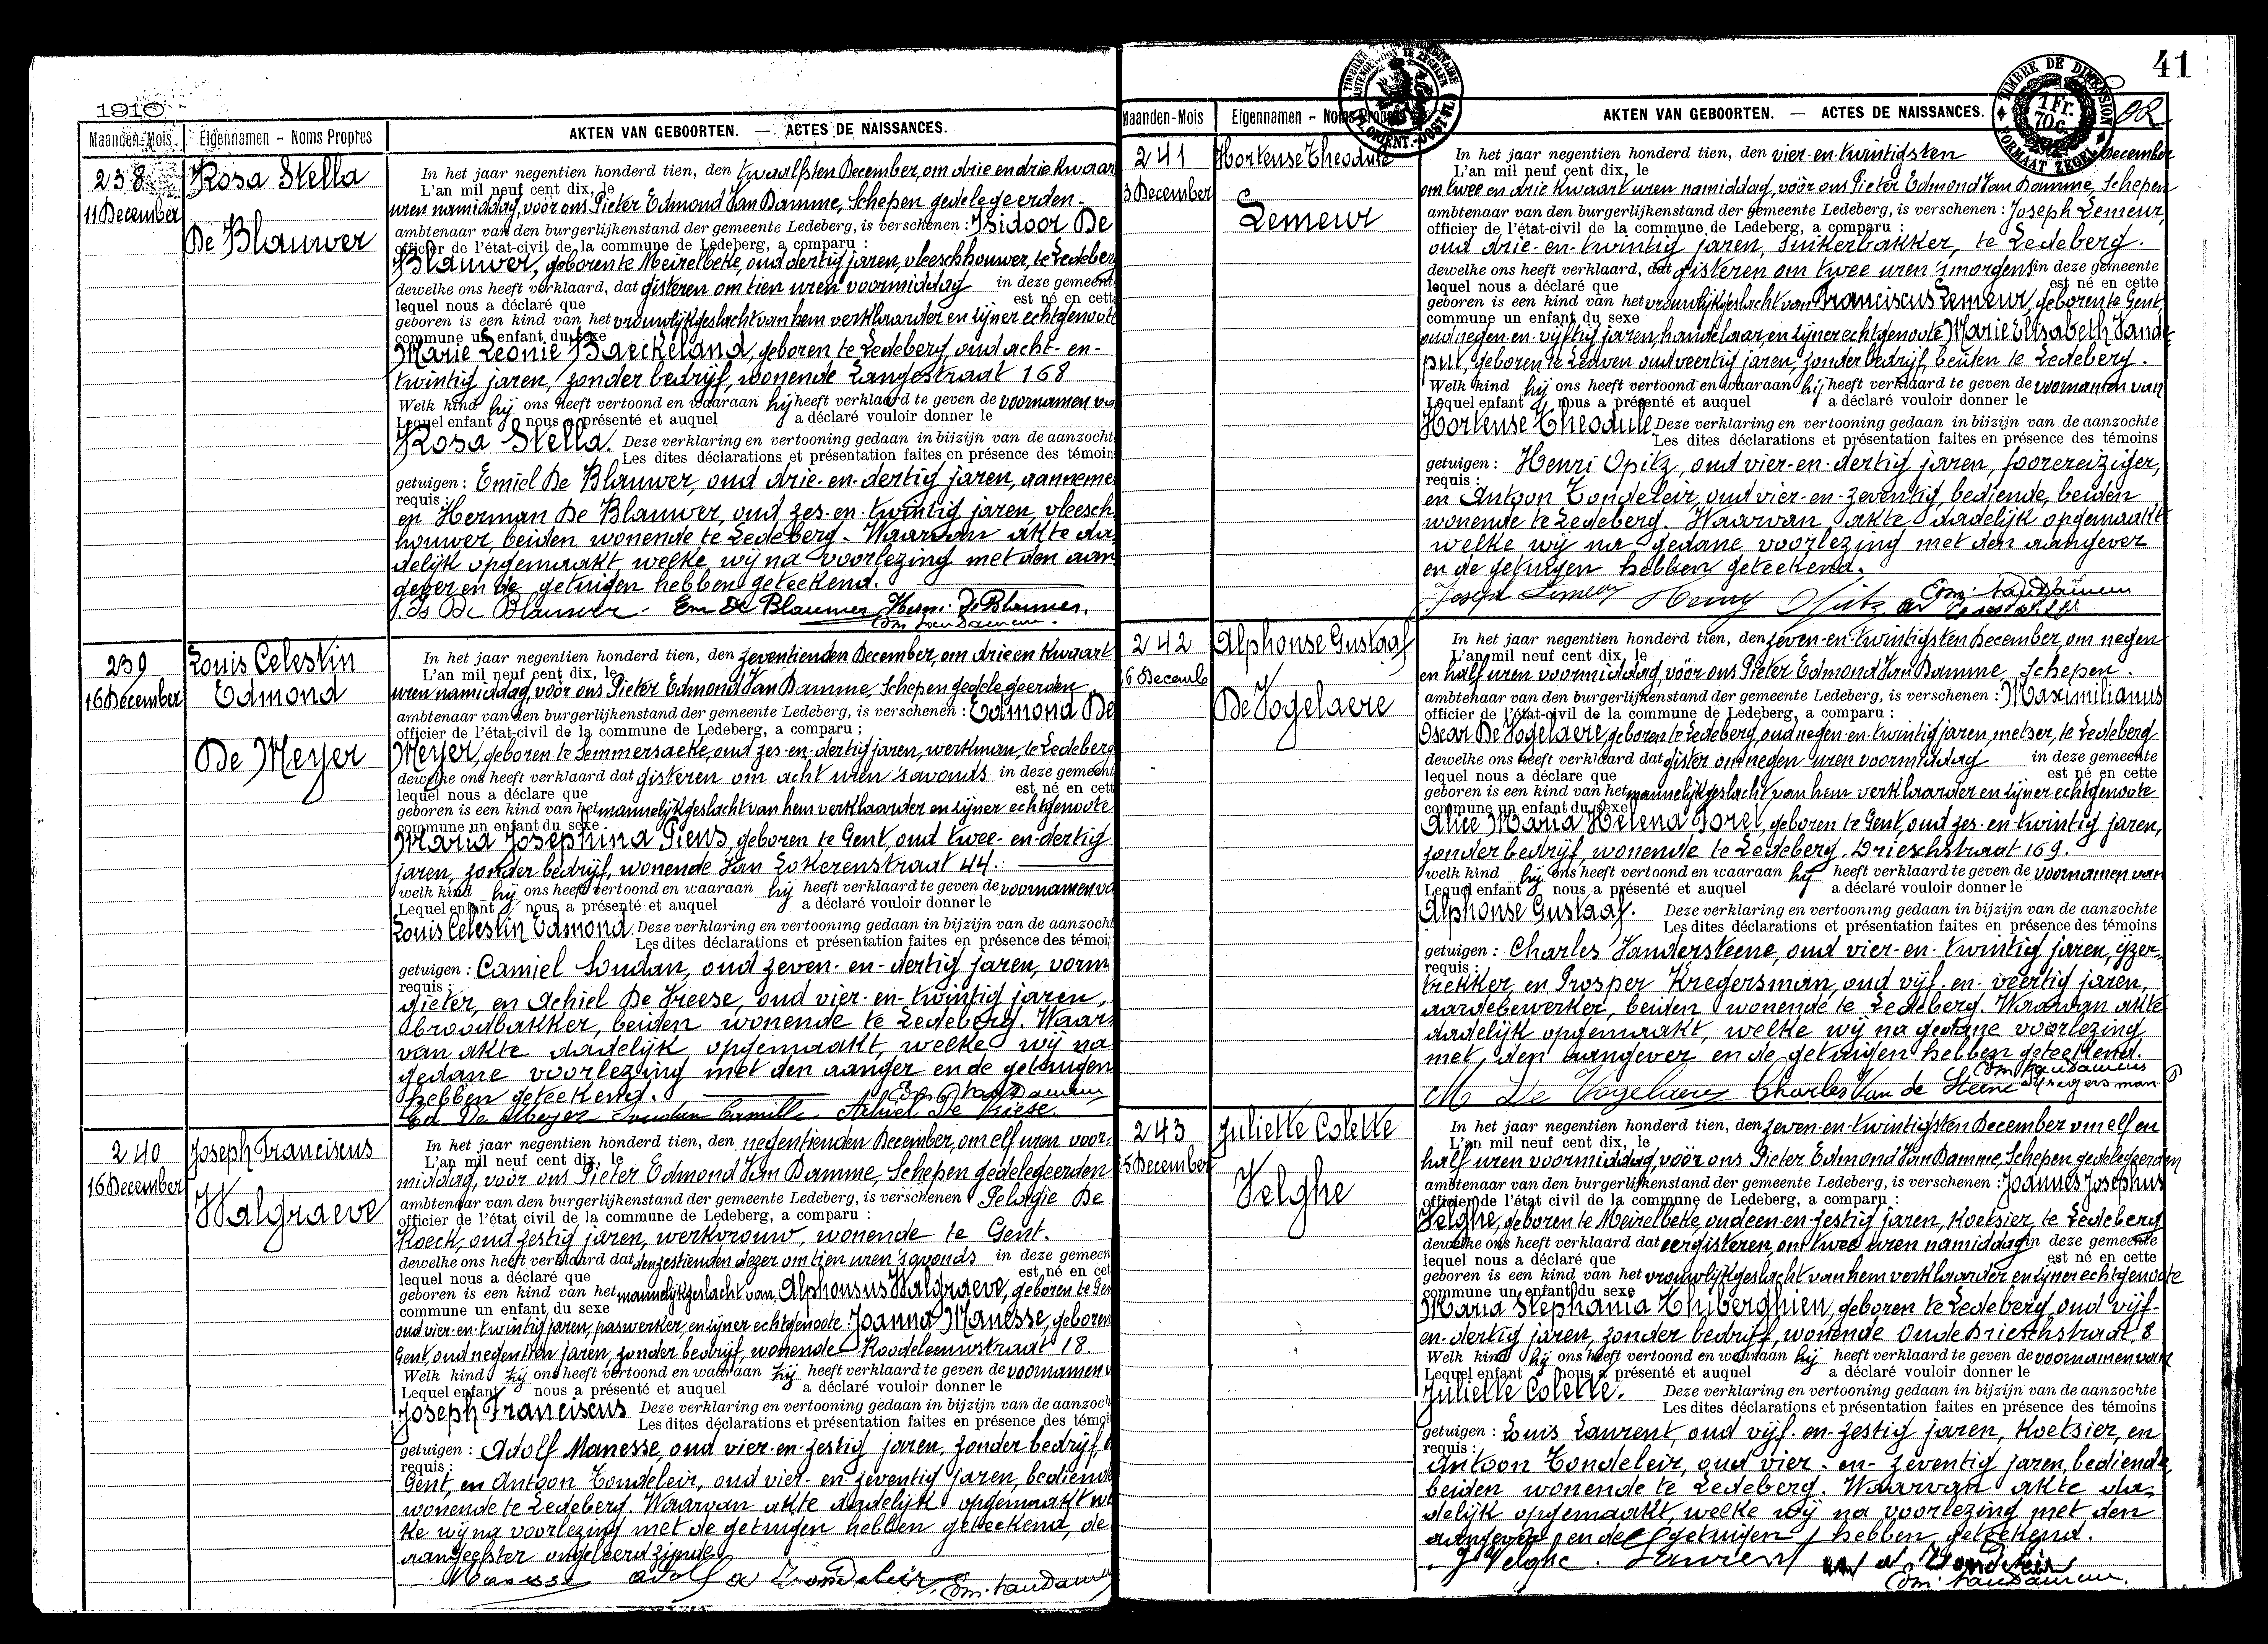 1910
Maanden-Mois. Eigennamen - Noms Propres
AKTEN VAN GEBOORTEN. — ACTES DE NAISSANCES.
238
11 December
Rosa Stella
De Blauwer
In het jaar negentien honderd tien, den twaalfsten December, om drie en drie kwaar
L'an mil neuf cent dix, le
uren namiddag, voor ons Pieter Edmond Van Damme, Schepen gedelegeerden
ambtenaar van den burgerlijkenstand der gemeente Ledeberg, is verschenen : Isidoor De
officier de l'état-civil de la commune de Ledeberg, a comparu :
Blauwer, geboren te Meirelbeke, oud dertig jaren, vleeschhouwer, te Ledeberg
dewelke ons heeft verklaard, dat gisteren om tien uren voormiddag in deze gemeent
lequel nous a déclaré que est né en cett
geboren is een kind van het vrouwlijkgeslacht van hem verklaarder en zijner echtgenoote
commune un enfant du sexe
Marie Leonie Baeckeland, geboren te Ledeberg, oud acht-en-
twintig jaren, zonder bedrijf, wonende Langestraat 168
Welk kind hij ons heeft vertoond en waaraan hij heeft verklaard te geven de voornamen va
Lequel enfant nous a présenté et auquel a déclaré vouloir donner le
Rosa Stella. Deze verklaring en vertooning gedaan in bijzijn van de aanzocht
Les dites déclarations et présentation faites en présence des témoin
getuigen : Emiel De Blauwer, oud drie-en-dertig jaren, aanneme
requis :
en Herman De Blauwer, oud zes-en-twintig jaren, vleesch
houwer, beiden wonende te Ledeberg. Waarvan akte da
delijk opgemaakt, welke wij na voorlezing met den aan
gever en de getuigen hebben geteekend.
Is De Blauwer. Em De Blauwer Herm. De Blauwer.
Edm. Van Damme.
239
16 December
Louis Celestin
Edmond
De Meyer
In het jaar negentien honderd tien, den zeventienden December, om drie en kwaart
L'an mil neuf cent dix, le
uren namiddag, voor ons Pieter Edmond Van Damme, Schepen gedelegeerden
ambtenaar van den burgerlijkenstand der gemeente Ledeberg, is verschenen : Edmond De
officier de l'état-civil de la commune de Ledeberg, a comparu :
Meyer, geboren te Semmersaeke, oud zes-en-dertig jaren, werkman, te Ledeberg
dewelke ons heeft verklaard dat gisteren om acht uren 's avonds in deze gemeent
lequel nous a déclaré que est né en cett
geboren is een kind van het mannelijkgeslacht van hem verklaarder en zijner echtgenoote
commune un enfant du sexe
Maria Josephina Piens, geboren te Gent, oud twee-en-dertig
jaren, zonder bedrijf, wonende Van Lokerenstraat 44.
welk kind hij ons heeft vertoond en waaraan hij heeft verklaard te geven de voornamen va
Lequel enfant nous a présenté et auquel a déclaré vouloir donner le
Louis Celestin Edmond. Deze verklaring en vertooning gedaan in bijzijn van de aanzocht
Les dites déclarations et présentation faites en présence des témoi
getuigen : Camiel Soudan, oud zeven-en-dertig jaren, vorm
requis :
gieter, en Achiel De Vreese, oud vier-en-twintig jaren,
broodbakker, beiden wonende te Ledeberg. Waar
van akte dadelijk opgemaakt, welke wij na
gedane voorlezing met den aanger en de getuigen
hebben geteekend. Edm. Van Damme
Ed De Meyer Soudan Camille Achiel De Vriese.
240
16 December
Joseph Franciscus
Walgraeve
In het jaar negentien honderd tien, den negentienden December, om elf uren voor-
L'an mil neuf cent dix, le
middag, voor ons Pieter Edmond Van Damme, Schepen gedelegeerden
ambtenaar van den burgerlijkenstand der gemeente Ledeberg, is verschenen Pelagie De
officier de l'état civil de la commune de Ledeberg, a comparu :
Koeck, oud zestig jaren, werkvrouw, wonende te Gent.
dewelke ons heeft verklaard dat den zestienden dezer om tien uren 's avonds in deze gemeen
lequel nous a déclaré que est né en cet
geboren is een kind van het mannelijkgeslacht van Alphonsus Walgraeve, geboren te Gen
commune un enfant du sexe
oud vier-en-twintig jaren, paswerker, en zijner echtgenoote Joanna Manesse, geboren
Gent, oud negentien jaren, zonder bedrijf, wonende Roodeleeuwstraat 18.
Welk kind zij ons heeft vertoond en waaraan zij heeft verklaard te geven de voornamen v
Lequel enfant nous a présenté et auquel a déclaré vouloir donner le
Joseph Franciscus Deze verklaring en vertooning gedaan in bijzijn van de aanzoch
Les dites déclarations et présentation faites en présence des témoi
getuigen : Adolf Manesse, oud vier-en-zestig jaren, zonder bedrijf
requis :
Gent, en Antoon Tondeleir, oud vier-en-zeventig jaren, bediende
wonende te Ledeberg. Waarvan akte dadelijk opgemaakt we
ke wij na voorlezing met de getuigen hebben geteekend, de
aangeefster ongeleerd zijnde.
Manesse Adolf A Tondeleir Edm. Van Damme
41
TIMBRE DE DIMENSION
1 Fr. 70 C.
FORMAAT ZEGEL
Maanden-Mois Eigennamen - Noms Propres
AKTEN VAN GEBOORTEN. — ACTES DE NAISSANCES.
241
3 December
Hortense Theodule
Lemeur
In het jaar negentien honderd tien, den vier-en-twintigsten December
L'an mil neuf cent dix, le
om twee en drie kwaart uren namiddag, vóór ons Pieter Edmond Van Damme, Schepen
ambtenaar van den burgerlijkenstand der gemeente Ledeberg, is verschenen : Joseph Lemeur,
officier de l'état-civil de la commune de Ledeberg, a comparu :
oud drie-en-twintig jaren, suikerbakker, te Ledeberg.
dewelke ons heeft verklaard, dat gisteren om twee uren 's morgens in deze gemeente
lequel nous a déclaré que est né en cette
geboren is een kind van het vrouwlijkgeslacht van Franciscus Lemeur, geboren te Gent
commune un enfant du sexe
oud negen-en-vijftig jaren, handelaar, en zijner echtgenoote Marie Elisabeth Vande-
put, geboren te Leuven oud veertig jaren, zonder bedrijf, beiden te Ledeberg.
Welk kind hij ons heeft vertoond en waaraan hij heeft verklaard te geven de voornamen van
Lequel enfant nous a présenté et auquel a déclaré vouloir donner le
Hortense Theodule Deze verklaring en vertooning gedaan in bijzijn van de aanzochte
Les dites déclarations et présentation faites en présence des témoins
getuigen : Henri Opitz, oud vier-en-dertig jaren, foorereiziger,
requis :
en Antoon Tondeleir, oud vier-en-zeventig, bediende, beiden
wonende te Ledeberg. Waarvan akte dadelijk opgemaakt
welke wij na gedane voorlezing met den aangever
en de getuigen hebben geteekend.
Joseph Lemeur Henry Opitz Edm. Van Damme
A Tondeleir
242
6 Decemb
Alphonse Gustaaf
De Vogelaere
In het jaar negentien honderd tien, den zeven-en-twintigsten December, om negen
L'an mil neuf cent dix, le
en half uren voormiddag, vóór ons Pieter Edmond Van Damme, Schepen.
ambtenaar van den burgerlijkenstand der gemeente Ledeberg, is verschenen : Maximilianus
officier de l'état-civil de la commune de Ledeberg, a comparu :
Oscar De Vogelaere, geboren te Ledeberg, oud negen-en-twintig jaren, metser, te Ledeberg
dewelke ons heeft verklaard dat gister om negen uren voormiddag in deze gemeente
lequel nous a déclare que est né en cette
geboren is een kind van het mannelijkgeslacht van hem verklaarder en zijner echtgenoote
commune un enfant du sexe
Alice Maria Helena Borel, geboren te Gent, oud zes-en-twintig jaren,
zonder bedrijf, wonende te Ledeberg, Drieschstraat 169.
welk kind hij ons heeft vertoond en waaraan hij heeft verklaard te geven de voornamen van
Lequel enfant nous a présenté et auquel a déclaré vouloir donner le
Alphonse Gustaaf. Deze verklaring en vertooning gedaan in bijzijn van de aanzochte
Les dites déclarations et présentation faites en présence des témoins
getuigen : Charles Vandersteene, oud vier-en-twintig jaren, ijzer-
requis :
trekker, en Prosper Kregersman, oud vijf-en-veertig jaren,
aardebewerker, beiden wonende te Ledeberg. Waarvan akte
dadelijk opgemaakt, welke wij na gedane voorlezing
met den aangever en de getuigen hebben geteekend.
Edm. Van Damme
M De Vogelaere Charles Van de Steene Kregersman P
243
5 December
Juliette Colette
Velghe
In het jaar negentien honderd tien, den zeven-en-twintigsten December om elf en
L'an mil neuf cent dix, le
half uren voormiddag, vóór ons Pieter Edmond Van Damme, Schepen gedelegeerden
ambtenaar van den burgerlijkenstand der gemeente Ledeberg, is verschenen : Joannes Josephus
officier de l'état civil de la commune de Ledeberg, a comparu :
Velghe, geboren te Meirelbeke, oud een-en-zestig jaren, koetsier, te Ledeberg
dewelke ons heeft verklaard dat eergisteren, om twee uren namiddag in deze gemeente
lequel nous a déclaré que est né en cette
geboren is een kind van het vrouwlijkgeslacht van hem verklaarder en zijner echtgenoote
commune un enfant du sexe
Maria Stephania Thiberghien, geboren te Ledeberg, oud vijf-
en-dertig jaren, zonder bedrijf, wonende Oude Brieschstraat 8
Welk kind hij ons heeft vertoond en waaraan hij heeft verklaard te geven de voornamen van
Lequel enfant nous a présenté et auquel a déclaré vouloir donner le
Juliette Colette. Deze verklaring en vertooning gedaan in bijzijn van de aanzochte
Les dites déclarations et présentation faites en présence des témoins
getuigen : Louis Laurent, oud vijf-en-zestig jaren, koetsier, en
requis :
Antoon Tondeleir, oud vier-en-zeventig jaren, bediende,
beiden wonende te Ledeberg. Waarvan akte da-
delijk opgemaakt, welke wij na voorlezing met den
aangever en de getuigen hebben geteekend.
J Velghe. Laurent A. Tondeleir
Edm. Van Damme.